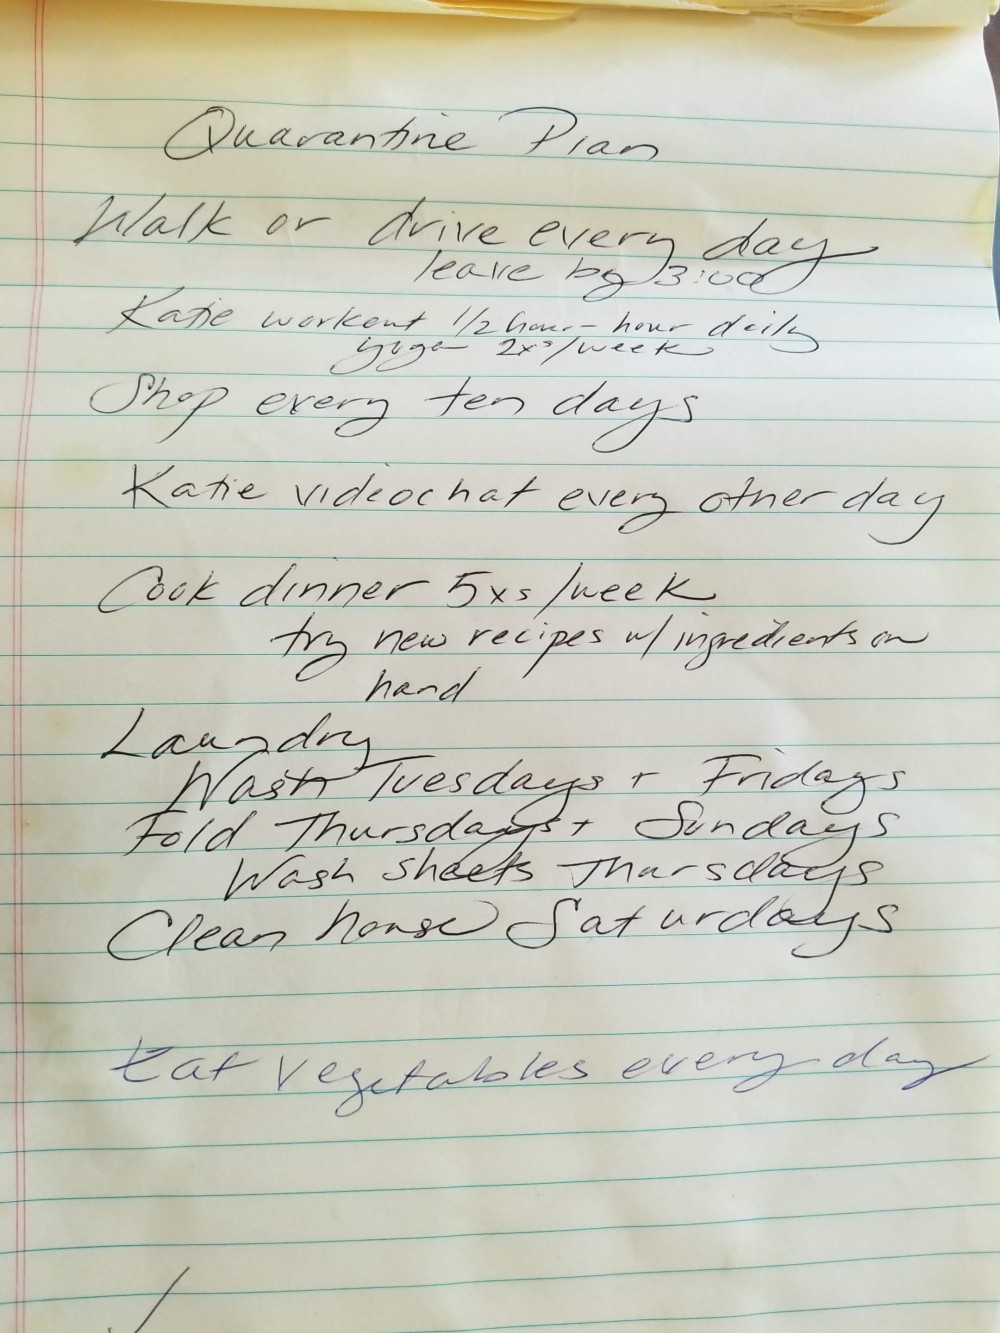 Quarantine Plan
Walk or drive every day
leave by 3:00
Katie workout 1/2 hour - hour daily
yoga 2xs/week
Shop every ten days
Katie videochat every other day
Cook dinner 5xs/week
try new recipes w/ ingredients on
hand
Laundry
Wash Tuesdays + Fridays
Fold Thursdays + Sundays
Wash sheets Thursdays
Clean house Saturdays
Eat vegetables every day